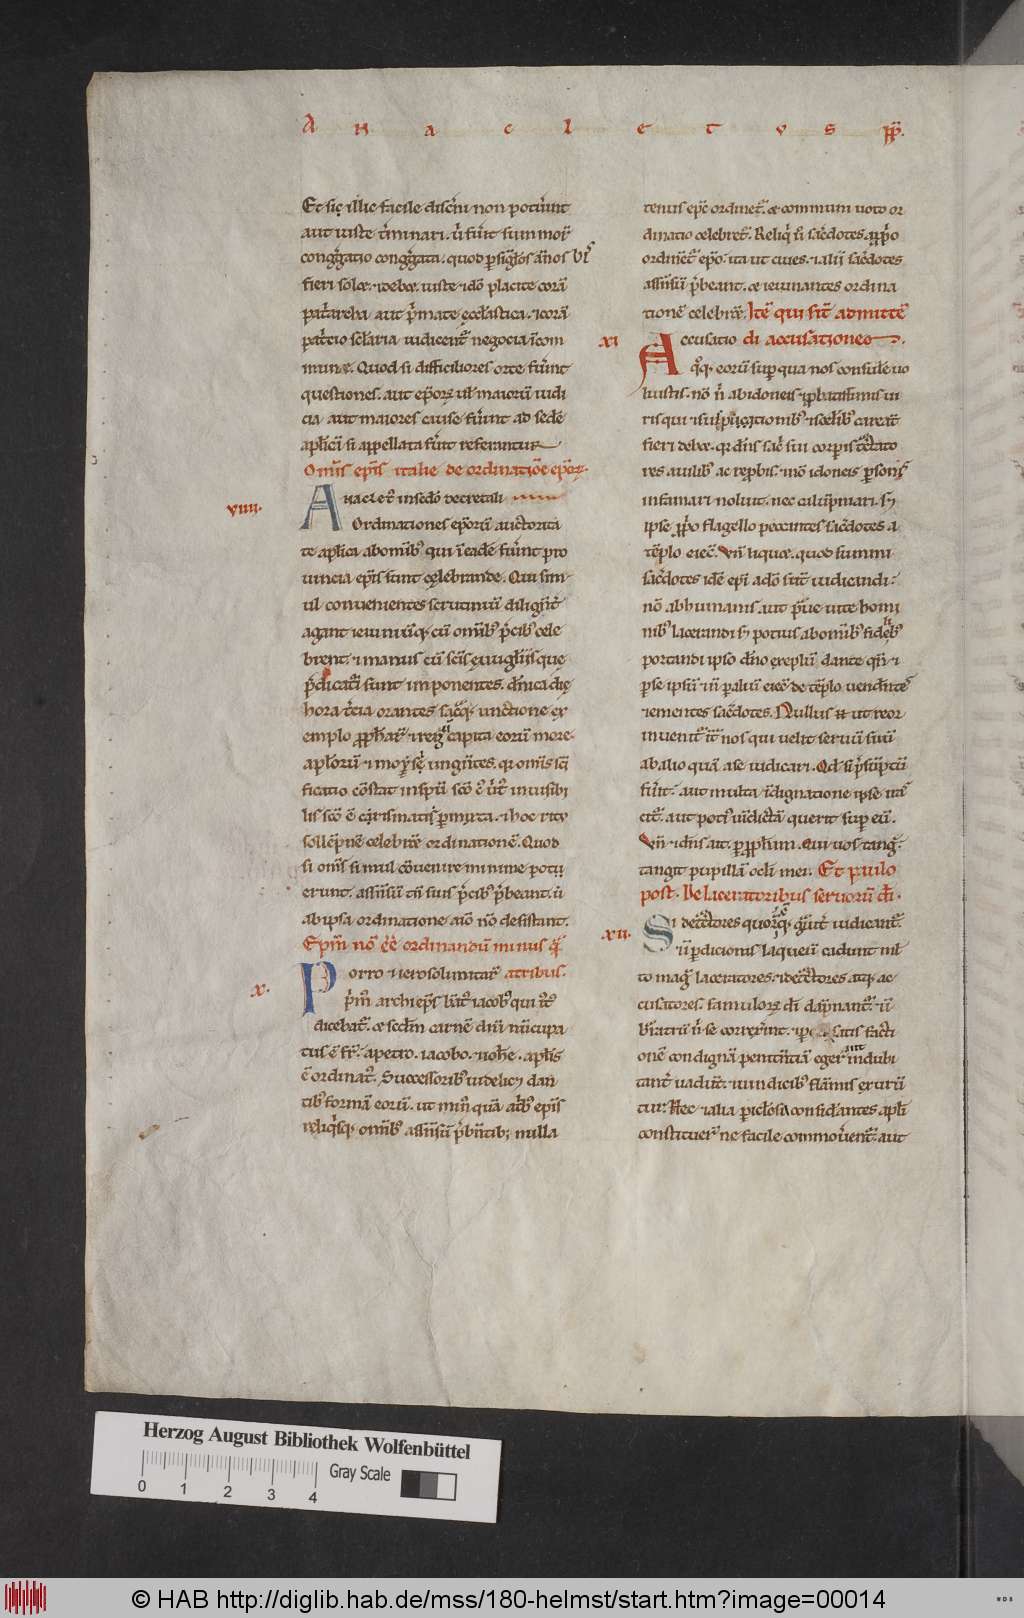 A n a c l e t v s pp̄.
Et sic illic facile discerni non poterint
aut iuste t̄minari. ū fūit summor̄
cong̃gatio cong̃gata. quod p singlos annos
fieri solet. & debet. iuste & idō placite corā
pat̄archa aut p̄mate ęcclastica. & corā
pat̄cio sclaria iudicent̄ negocia īcom
munę. Quod si difficiliores orte fūint
questiones. aut ep̄oꝝ ut maiorū iudi
cia aut maiores cause fūint ad sedē
apl̄icā si appellata fūit referantur
Om̄is ep̄is italie de ordinatiōe ep̄oꝝ.
viiii.
Anaclet' in sedō decretali
Ordinationes ep̄orū auctorita
te apl̄ica ab om̄ib' qui ī eadē fūint pro
uincia ep̄is sunt cęlebrande. Qui sim
ul conuenientes scrutiniū diligūt
agant ieiuniūq; cū om̄ib' p̄cib' cele
brent. & manus cū scīs euuḡliis quę
p̄dicat̄i sunt imponentes. dn̄ica die
hora t̄cia orantes sac̄q; unctione ex
emplo pph̄ar̄ & reḡ capita eorū more
apl̄orū & moysę ungūtes. qr om̄is scī
ficatio cōstat in sp̄u sc̄o c' ūt' inuisibi
lis sc̄o ē c̄rismatis p̄mixta. & hoc ritu
sollēpnē celebrar̄ ordinationē. Quod
si om̄s simul cōuenire minime potu
erunt. assn̄sū tn̄ suis p̄cib' p̄beant. ū
ab ipsa ordinatione aīō nō desistant.
Ep̄m nō ēē ordinandū minus q̄
x.
Porro & ierosolimitar̄ a tribus.
p̄m' archiep̄s bt' iacob' qui i't'
dicebat̄. et secdm carnē dn̄i nūcupa
tus ē fr̄. a petro. iacobo. & iohe. apl̄is
ē ordinat'. Successorib' uidelic; dan
tib' formā eorū. ut min' quā a trib' ep̄is
reliq̄sq; om̄ib' assn̄sū p̄būtib; nulla
tenus ep̄c ordinet̄. & communi uoto or
dinatio celebret̄. Reliq̄ ū sac̄dotes a pp̄o
ordinet̄ ep̄o. ita ut ciues. & alii sac̄dotes
assn̄sū p̄beant. & ieiunantes ordina
tionē celebrar̄. Itē qui sīt admittē
xi
Accusatio di accusationes.
q̄q; eorū sup qua nos consulē uo
luistis. nō n̄ ab idoneis & p̄batissimis ui
ris qui & suspicionib' & scelib' careāt
fieri debet. qr dn̄s sac̄ sui corpis t̄ctato
res a uilib' ac rep̄bis. & nō idoneis p̄sonis
infamari noluit. nec calūpniari. s;
ipse pp̄o flagello peccantes sac̄dotes a
tēplo eiec̄. Vn̄ liquet. quod summi
sac̄dotes idē ep̄i a dō sūt iudicandi.
nō ab humanis. aut p̄ue uite homi
nib' lacerandi s; potius ab om̄ib' fidelib'
portandi ipso dn̄o exeplū dante qn̄ &
p se ipsū & n̄ p aliū eiec̄ de tēplo uendn̄tes
& ementes sac̄dotes. Nullus n̄ ut reor
inuenit̄ int̄ nos qui uelit seruū suū
ab alio quā a se iudicari. Qd si p̄sūptū
fūit. aut multa īdignatione ipse irā
cit̄. aut pot' uīdictā querit sup eū.
Vn̄ & dn̄s ait. p pph̄am. Qui uos tang̃.
tangit pupillā ocl̄i mei. Et paulo
post. De laceratoribus seruorū di.
xii.
Si detctores quorq; g̃uit̄ iudicant̄.
& ū pdicionis laqueū cadunt ml̄
to mag̃ laceratores. & detctores atq; ac
cusatores. famuloꝝ di dapnant̄. & ū
bar̄atrū n̄ se correxerint. & p satis facti
onē condignā penitētiā eger̄ int indubi
tant̄ uadūt. & uindicib' flāmis exurū
tur. Hec & alia piclosa considantes apl̄i
constituer̄ ne facile commouerent̄. aut
Herzog August Bibliothek Wolfenbüttel
Gray Scale
0 1 2 3 4
© HAB http://diglib.hab.de/mss/180-helmst/start.htm?image=00014